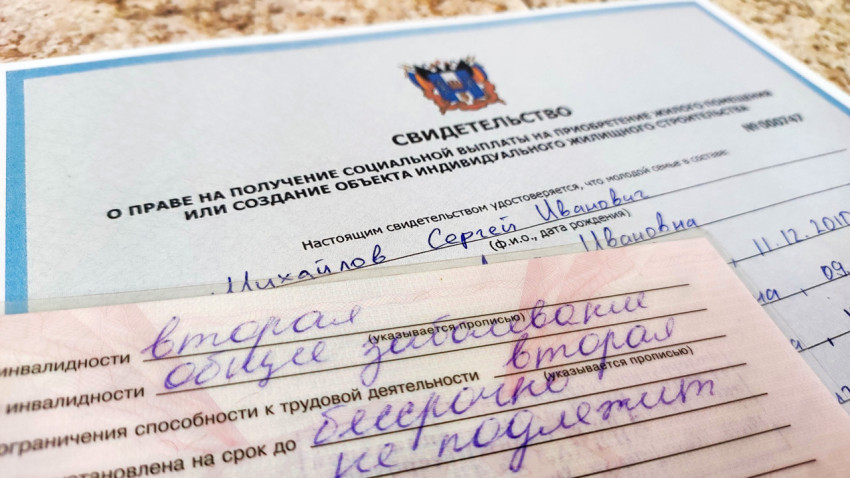 СВИДЕТЕЛЬСТВО
О ПРАВЕ НА ПОЛУЧЕНИЕ СОЦИАЛЬНОЙ ВЫПЛАТЫ НА ПРИОБРЕТЕНИЕ ЖИЛОГО ПОМЕЩЕНИЯ
ИЛИ СОЗДАНИЕ ОБЪЕКТА ИНДИВИДУАЛЬНОГО ЖИЛИЩНОГО СТРОИТЕЛЬСТВА
№ 000747
Настоящим свидетельством удостоверяется, что молодой семье в составе:
Михайлов Сергей Иванович
(ф.и.о., дата рождения)
Ивановна
11.12.2010
на, 09.
инвалидности вторая
(указывается прописью)
инвалидности общее заболевание
ограничения способности к трудовой деятельности вторая
(указывается прописью)
на срок до бессрочно
не подлежит